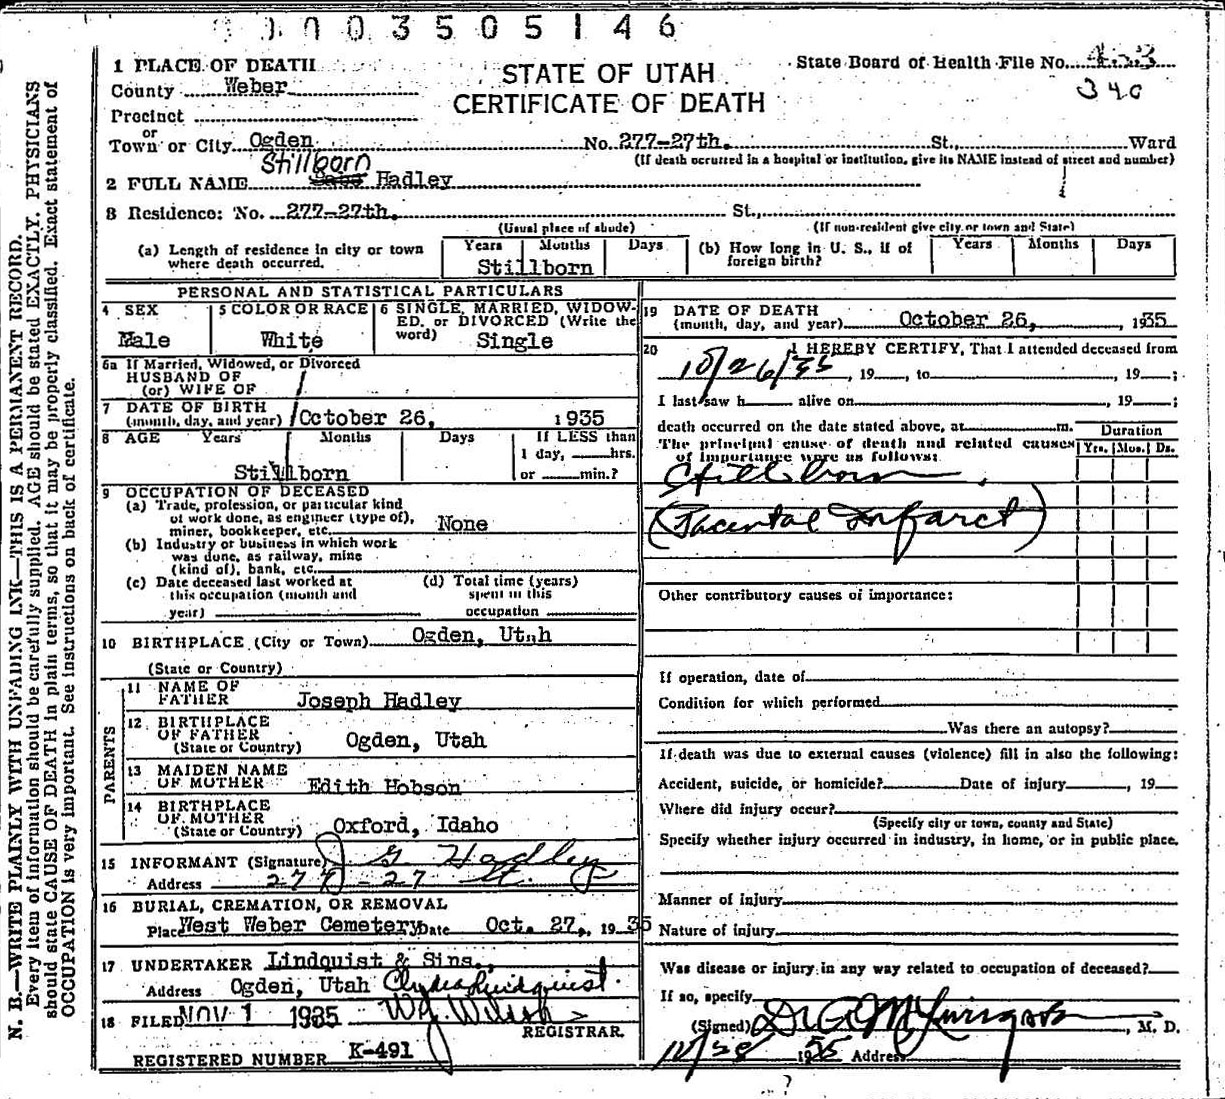 0003505146
1 PLACE OF DEATH
County Weber
STATE OF UTAH
CERTIFICATE OF DEATH
State Board of Health File No.
340
Precinct
or
Town or City Ogden No. 277-27th. St., Ward
(If death occurred in a hospital or institution, give its NAME instead of street and number)
Stillborn
2 FULL NAME Hadley
3 Residence: No. 277-27th. St.,
(Usual place of abode) (If non-resident give city or town and State)
(a) Length of residence in city or town where death occurred. Years Months Days
Stillborn
(b) How long in U. S., if of foreign birth? Years Months Days
PERSONAL AND STATISTICAL PARTICULARS
4 SEX
Male
5 COLOR OR RACE
White
6 SINGLE, MARRIED, WIDOWED, or DIVORCED (Write the word)
Single
6a If Married, Widowed, or Divorced
HUSBAND OF
(or) WIFE OF
7 DATE OF BIRTH
(month, day, and year) October 26, 1935
8 AGE Years Months Days If LESS than
1 day, hrs.
Stillborn or min.?
9 OCCUPATION OF DECEASED
(a) Trade, profession, or particular kind
of work done, as engineer (type of),
miner, bookkeeper, etc. None
(b) Industry or business in which work
was done, as railway, mine
(kind of), bank, etc.
(c) Date deceased last worked at
this occupation (month and
year)
(d) Total time (years)
spent in this
occupation
10 BIRTHPLACE (City or Town) Ogden, Utah
(State or Country)
PARENTS
11 NAME OF
FATHER Joseph Hadley
12 BIRTHPLACE
OF FATHER
(State or Country) Ogden, Utah
13 MAIDEN NAME
OF MOTHER Edith Hobson
14 BIRTHPLACE
OF MOTHER
(State or Country) Oxford, Idaho
15 INFORMANT (Signature) J G Hadley
Address 277-27 St.
16 BURIAL, CREMATION, OR REMOVAL
Place West Weber Cemetery Date Oct. 27, 1935
17 UNDERTAKER Lindquist & Sins.,
Address Ogden, Utah Clyde Lindquist
18 FILED NOV 1 1935
REGISTRAR.
REGISTERED NUMBER K-491
19 DATE OF DEATH
(month, day, and year) October 26, 1935
20 I HEREBY CERTIFY, That I attended deceased from
10/26/35, 19 , to , 19 ;
I last saw h alive on , 19 ;
death occurred on the date stated above, at m.
The principal cause of death and related causes
of importance were as follows:
Duration
Yrs. Mos. Ds.
Stillborn.
(Placental Infarct)
Other contributory causes of importance:
If operation, date of
Condition for which performed
Was there an autopsy?
If death was due to external causes (violence) fill in also the following:
Accident, suicide, or homicide? Date of injury , 19
Where did injury occur?
(Specify city or town, county and State)
Specify whether injury occurred in industry, in home, or in public place.
Manner of injury
Nature of injury
Was disease or injury in any way related to occupation of deceased?
If so, specify
(Signed) Dr , M. D.
1935 Address
N. B.—WRITE PLAINLY WITH UNFADING INK—THIS IS A PERMANENT RECORD.
Every item of information should be carefully supplied. AGE should be stated EXACTLY. PHYSICIANS
should state CAUSE OF DEATH in plain terms, so that it may be properly classified. Exact statement of
OCCUPATION is very important. See instructions on back of certificate.